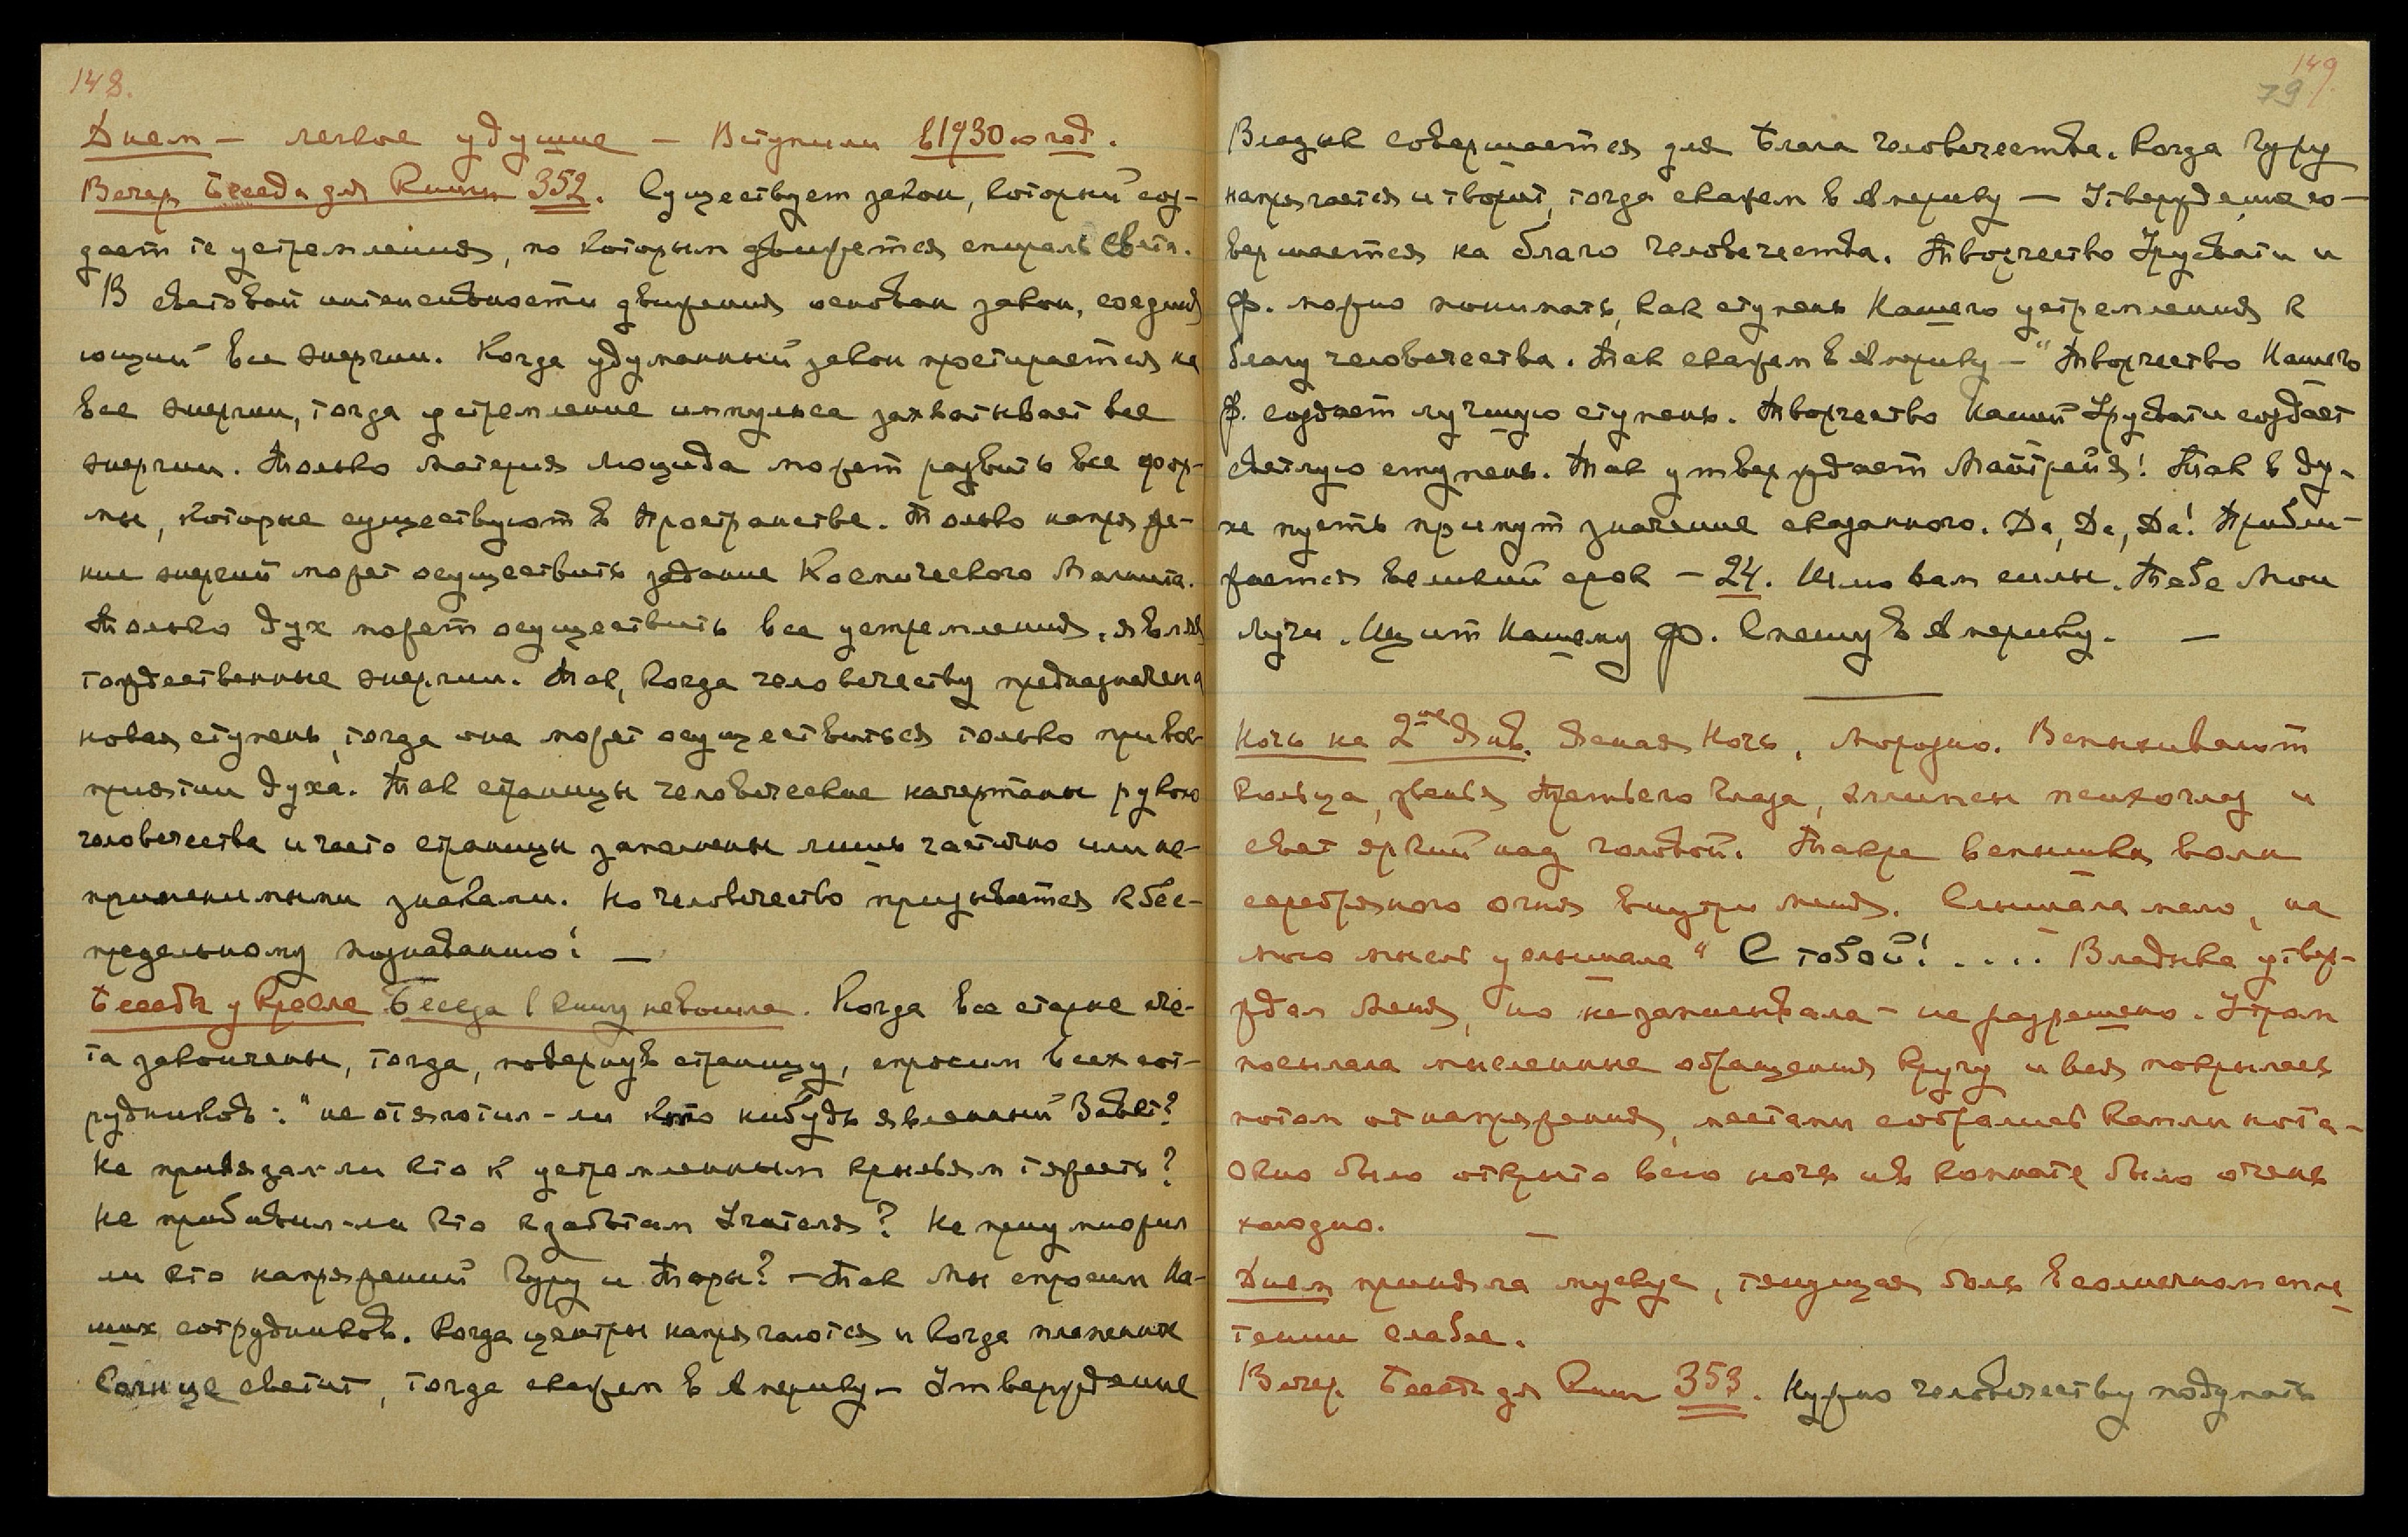 148.
Днем — легкое удушие — Вступили в 1930ю год.
Вечер. Беседа для Книги 352. Существует закон, который соз-
дает те устремления, по которым движется спираль света.
В световой интенсивности движения основан закон, соединя
ющий все энергии. Когда удуманный закон простирается на
все энергии, тогда устремление импульса захватывает все
энергии. Только Материя Люцида может развить все фор-
мы, которые существуют в Пространстве. Только напряже-
ние энергий может осуществить задание Космического Магнита.
Только дух может осуществить все устремления, являя
тождественные энергии. Так, когда человечеству предназначена
новая ступень, тогда она может осуществиться только при вос-
приятии духа. Так страницы человеческие начертаны рукою
человечества и часто страницы заполнены лишь частично или не-
применимыми знаками. Но человечество призывается к бес-
предельному познаванию! —
Беседа у Кресла Беседа в книгу не вошла. Когда все старые сче-
та закончены, тогда, повернув страницу, спросим всех сот-
рудников: "не отяготил-ли кто нибудь явленный Завет?
Не привязал-ли кто к устремленным крыльям тяжесть?
Не прибавил-ли кто к заботам Учителя? Не приумножил
ли кто напряжений Гуру и Тары? — Так Мы спросим На-
ших сотрудников. Когда центры напрягаются и когда пламенное
Солнце светит, тогда скажем в Америку — Утверждение
149
79
Владык совершается для Блага человечества. Когда Гуру
напрягается и творит, тогда скажем в Америку — Утверждение со-
вершается на благо человечества. Творчество Урусвати и
Ф. можно понимать, как ступень Нашего устремления к
благу человечества. Так скажем в Америку — "Творчество Нашего
Ф. создает лучшую ступень. Творчество Нашей Урусвати создает
светлую ступень. Так утверждает Майтрейя! Так в ду-
хе пусть примут значение сказанного. Да, Да, Да! Прибли-
жается великий срок — 24. Шлю вам силы. Тебе Мои
Лучи. Щит Нашему Ф. Спешу в Америку. —
Ночь на 2ое Янв. Ясная Ночь, Морозно. Вспыхивают
кольца, звенья Третьего Глаза, эллипсы психоглаз и
свет яркий над головой. Также вспышки волн
серебряного огня внутри меня. Слышала мало, на
мою мысль услышала "С тобой! .... Владыка утвер-
ждал меня, но не записывала — не разрешено. Утром
посылала мысленные обращения Кругу и вся покрылась
потом от напряжения, местами собрались капли пота —
окно было открыто всю ночь и в комнате было очень
холодно. —
Днем приняла мускус, тянущая боль в солнечном спле
тении слабее.
Вечер. Беседа для Книги 353. Нужно человечеству подумать